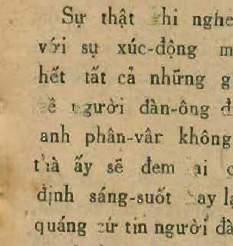 Sự thật khi nghe
với sự xúc-động
hết tất cả những
người đàn-ông
anh phân-vân không
ấy sẽ đem
định sáng-suốt hay
quáng tin người